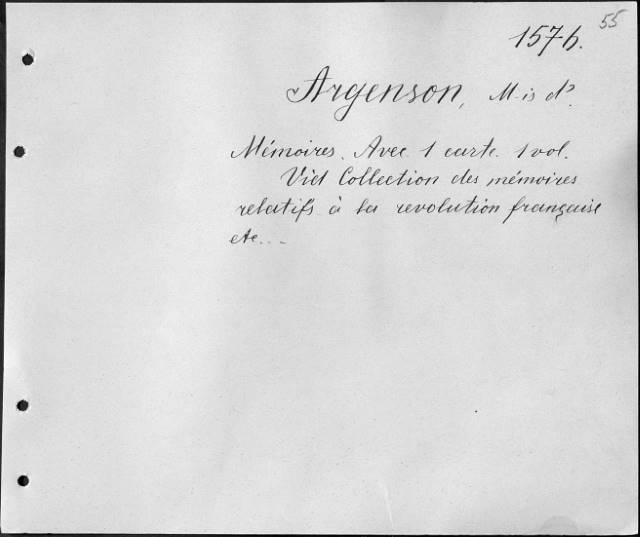 55
1576.
Argenson, M-is d'.
Mémoires. Avec 1 carte. 1 vol.
Vid Collection des mémoires
relatifs à la revolution française
etc...